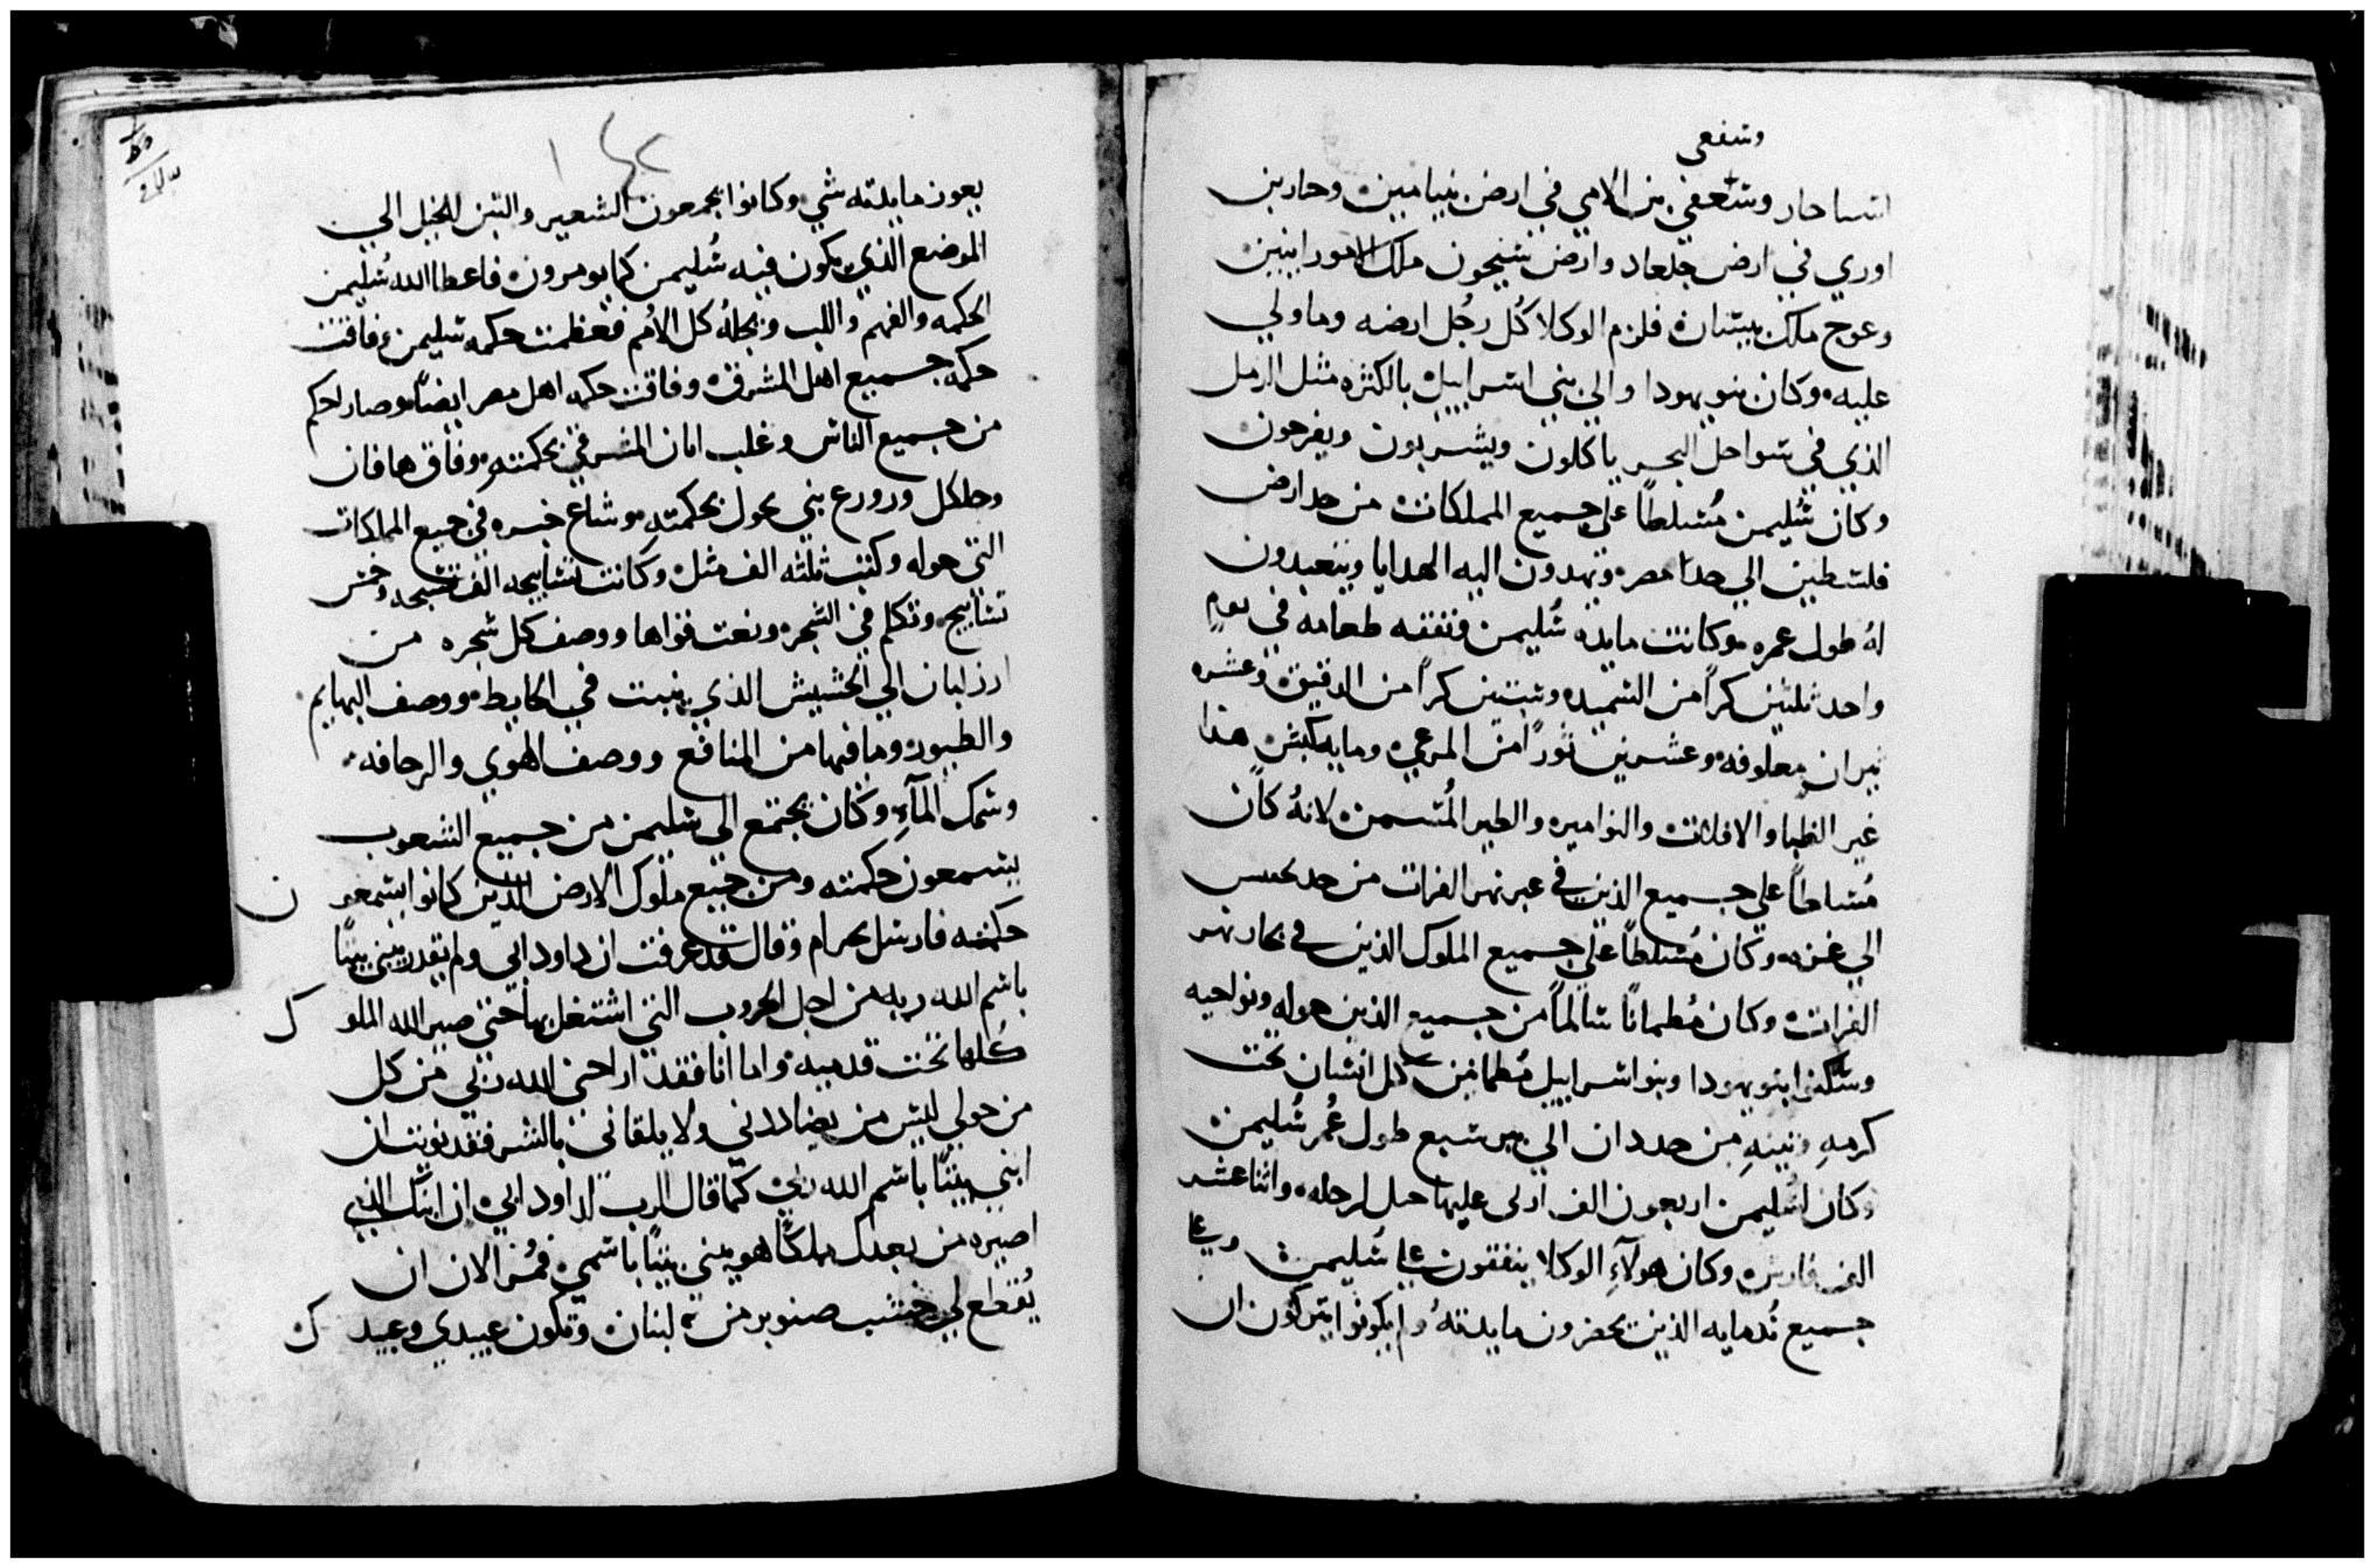 وشفعي
ايساحار وشعفي بن الامي في ارض بنيامين وحاربن
اوري في ارض جلعاد وارض سيحون ملك الامورانيين
وعوج ملك بيسان فلزم الوكلا كُل رجُل ارضه وما ولي
عليه وكان بنو يهودا والي بني اسراييل بالكثره مثل الرمل
الذي في سواحل البحر ياكلون ويشربون ويفرحون
وكان سُليمن مُسلطاً علي جميع المملكات من حد ارض
فلسطين الي حد مصر ويهدون اليه الهدايا ويتعبدون
لهُ طول عمره وكانت مايده سُليمن ونفقه طعامه في يومٍ
واحد ثلثين كراً من السميد وستين كراً من الدقيق وعشره
ثيران معلوفه وعشرين ثوراً من المرعي ومايه كبش هذا
غير الظبا والايلات والنوامير والطير المُسمن لانهُ كان
مُسلطاً علي جميع الذين في عبر نهر الفرات من حد
الي غزه وكان مُسلطاً علي جميع الملوك الذين في بحار نهر
الفرات وكان مُطماناً سالماً من جميع الذين حوله ونواحيه
وسكنوا بنو يهودا وبنو اسراييل مُطمانين كل انسان تحت
كرمهِ وتينهِ من حد دان الي بير سبع طول عُمر سُليمن
وكان لسُليمن اربعون الف ارلي عليها حبل لرحله واثنا عشر
الف فارس وكان هولآءِ الوكلا ينفقون علي سُليمن وعلي
جميع نُدمايه الذين يحضرون مايدتهُ ولم يكونوا يتركون ان
يعوز مايدته شي وكانوا يجمعون الشعير والتبن للخيل الي
الموضع الذي يكون فيه سُليمن كما يومرون فاعطا الله سُليمن
الحكمه والفهم واللب وبجلهُ كل الاُمم فعظمت حكمه سليمن وفاقت
حكمه جميع اهل المشرق وفاقت حكمه اهل مصر ايضاً وصار احكم
من جميع الناس وغلب امان المشرقي بحكمته وفاق هافان
وحلكل ورورع بني محول بحكمتهِ وشاع خبره في جميع المملكات
التي حوله وكتب ثلثه الف مثل وكانت تسابيحه الف تسبحه وخمس
تسابيح وتكلم في الشجر ونعت قواها ووصف كل شجره من
ارز لبنان الي الحشيش الذي ينبت في الحايط ووصف البهايم
والطيور وما فيها من المنافع ووصف الهوي والزحافه
وسمك المآءِ وكان يجتمع الي سليمن من جميع الشعوب
يسمعون حكمته ومن جميع ملوك الارض الذين كانوا يسمعون
حكمته فارسل بحرام وقال قد عرفت ان داود ابي ولم يقدر يبني بيتاً
باسم الله ربه من اجل الحروب التي اشتغل بها حتي صير الله الملوك
كُلها تحت قدميه واما انا فقد اراحني الله ربي من كل
من حولي ليس من يضاددني ولا يلقاني بالشر فقد نويت ان
ابني بيتاً باسم الله ربي كما قال الرب لداود ابي ان ابنك الذي
اصيره من بعدك ملكاً هو يبني بيتاً باسمي فمُر الان ان
يُقطع لي خشب صنوبر من لبنان وتكون عبيدي وعبيدك